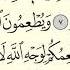 ٧ وَيُطْعِمُونَ
عِمُكُمْ لِوَجْهِ ٱللَّهِ لَا